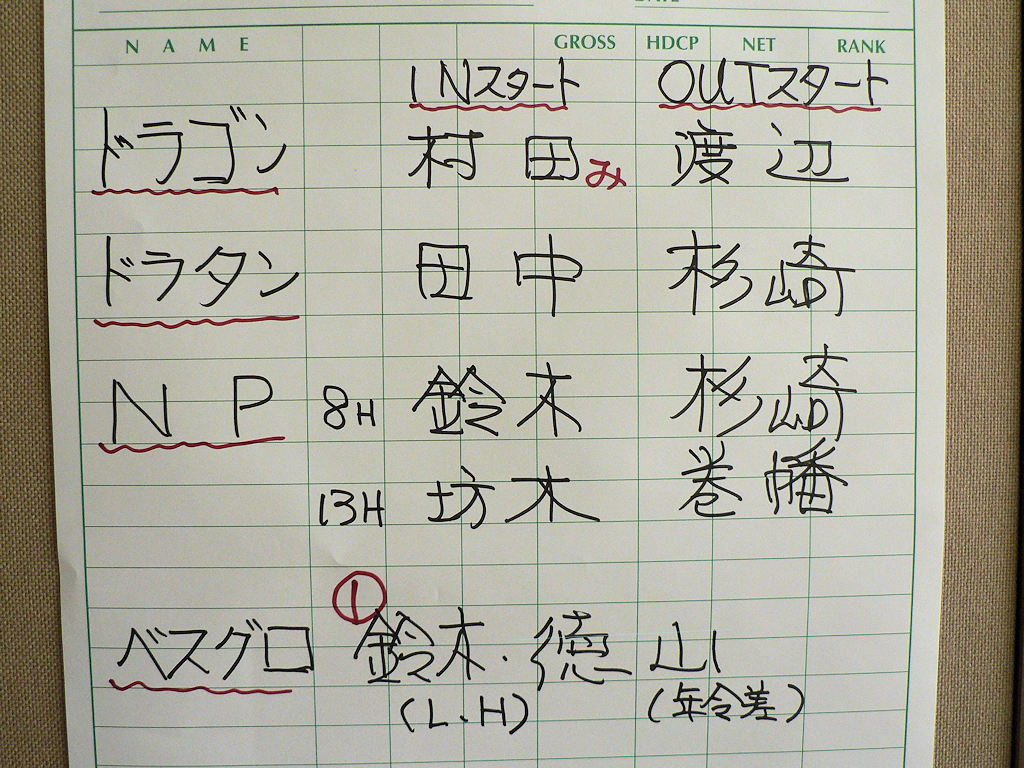 NAME GROSS HDCP NET RANK
INスタート OUTスタート
ドラゴン 村田み 渡辺
ドラタン 田中 杉崎
NP 8H 鈴木 杉崎
13H 坊木 巻幡
①
ベスグロ 鈴木・徳山
(L.H) (年令差)